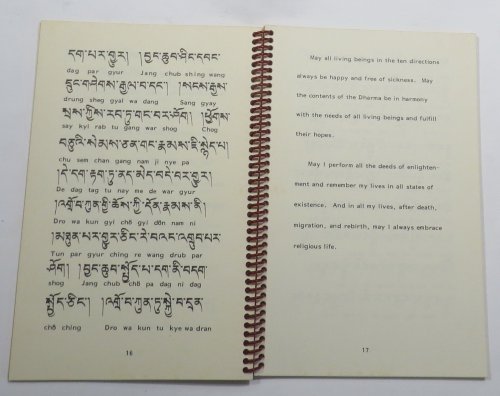 དག་པར་གྱུར། །བྱང་ཆུབ་ཤིང་དབང་
dag par gyur Jang chub shing wang
དྲུང་གཤེགས་རྒྱལ་བ་དང་། །སངས་རྒྱས་
drung sheg gyal wa dang Sang gyay
སྲས་ཀྱིས་རབ་ཏུ་གང་བར་ཤོག །ཕྱོགས་
say kyi rab tu gang war shog Chog
བཅུའི་སེམས་ཅན་གང་རྣམས་ཇི་སྙེད་པ།
chu sem chan gang nam ji nye pa
།དེ་དག་རྟག་ཏུ་ནད་མེད་བདེ་བར་གྱུར།
De dag tag tu nay me de war gyur
།འགྲོ་བ་ཀུན་གྱི་ཆོས་ཀྱི་དོན་རྣམས་ནི།
Dro wa kun gyi chö gyi dön nam ni
།མཐུན་པར་གྱུར་ཅིང་རེ་བའང་འགྲུབ་པར་
Tun par gyur ching re wang drub par
ཤོག །བྱང་ཆུབ་སྤྱོད་པ་དག་ནི་བདག་
shog Jang chub chö pa dag ni dag
སྤྱོད་ཅིང་། །འགྲོ་བ་ཀུན་ཏུ་སྐྱེ་བ་དྲན་
chö ching Dro wa kun tu kye wa dran
16
May all living beings in the ten directions
always be happy and free of sickness. May
the contents of the Dharma be in harmony
with the needs of all living beings and fulfill
their hopes.
May I perform all the deeds of enlighten-
ment and remember my lives in all states of
existence. And in all my lives, after death,
migration, and rebirth, may I always embrace
religious life.
17